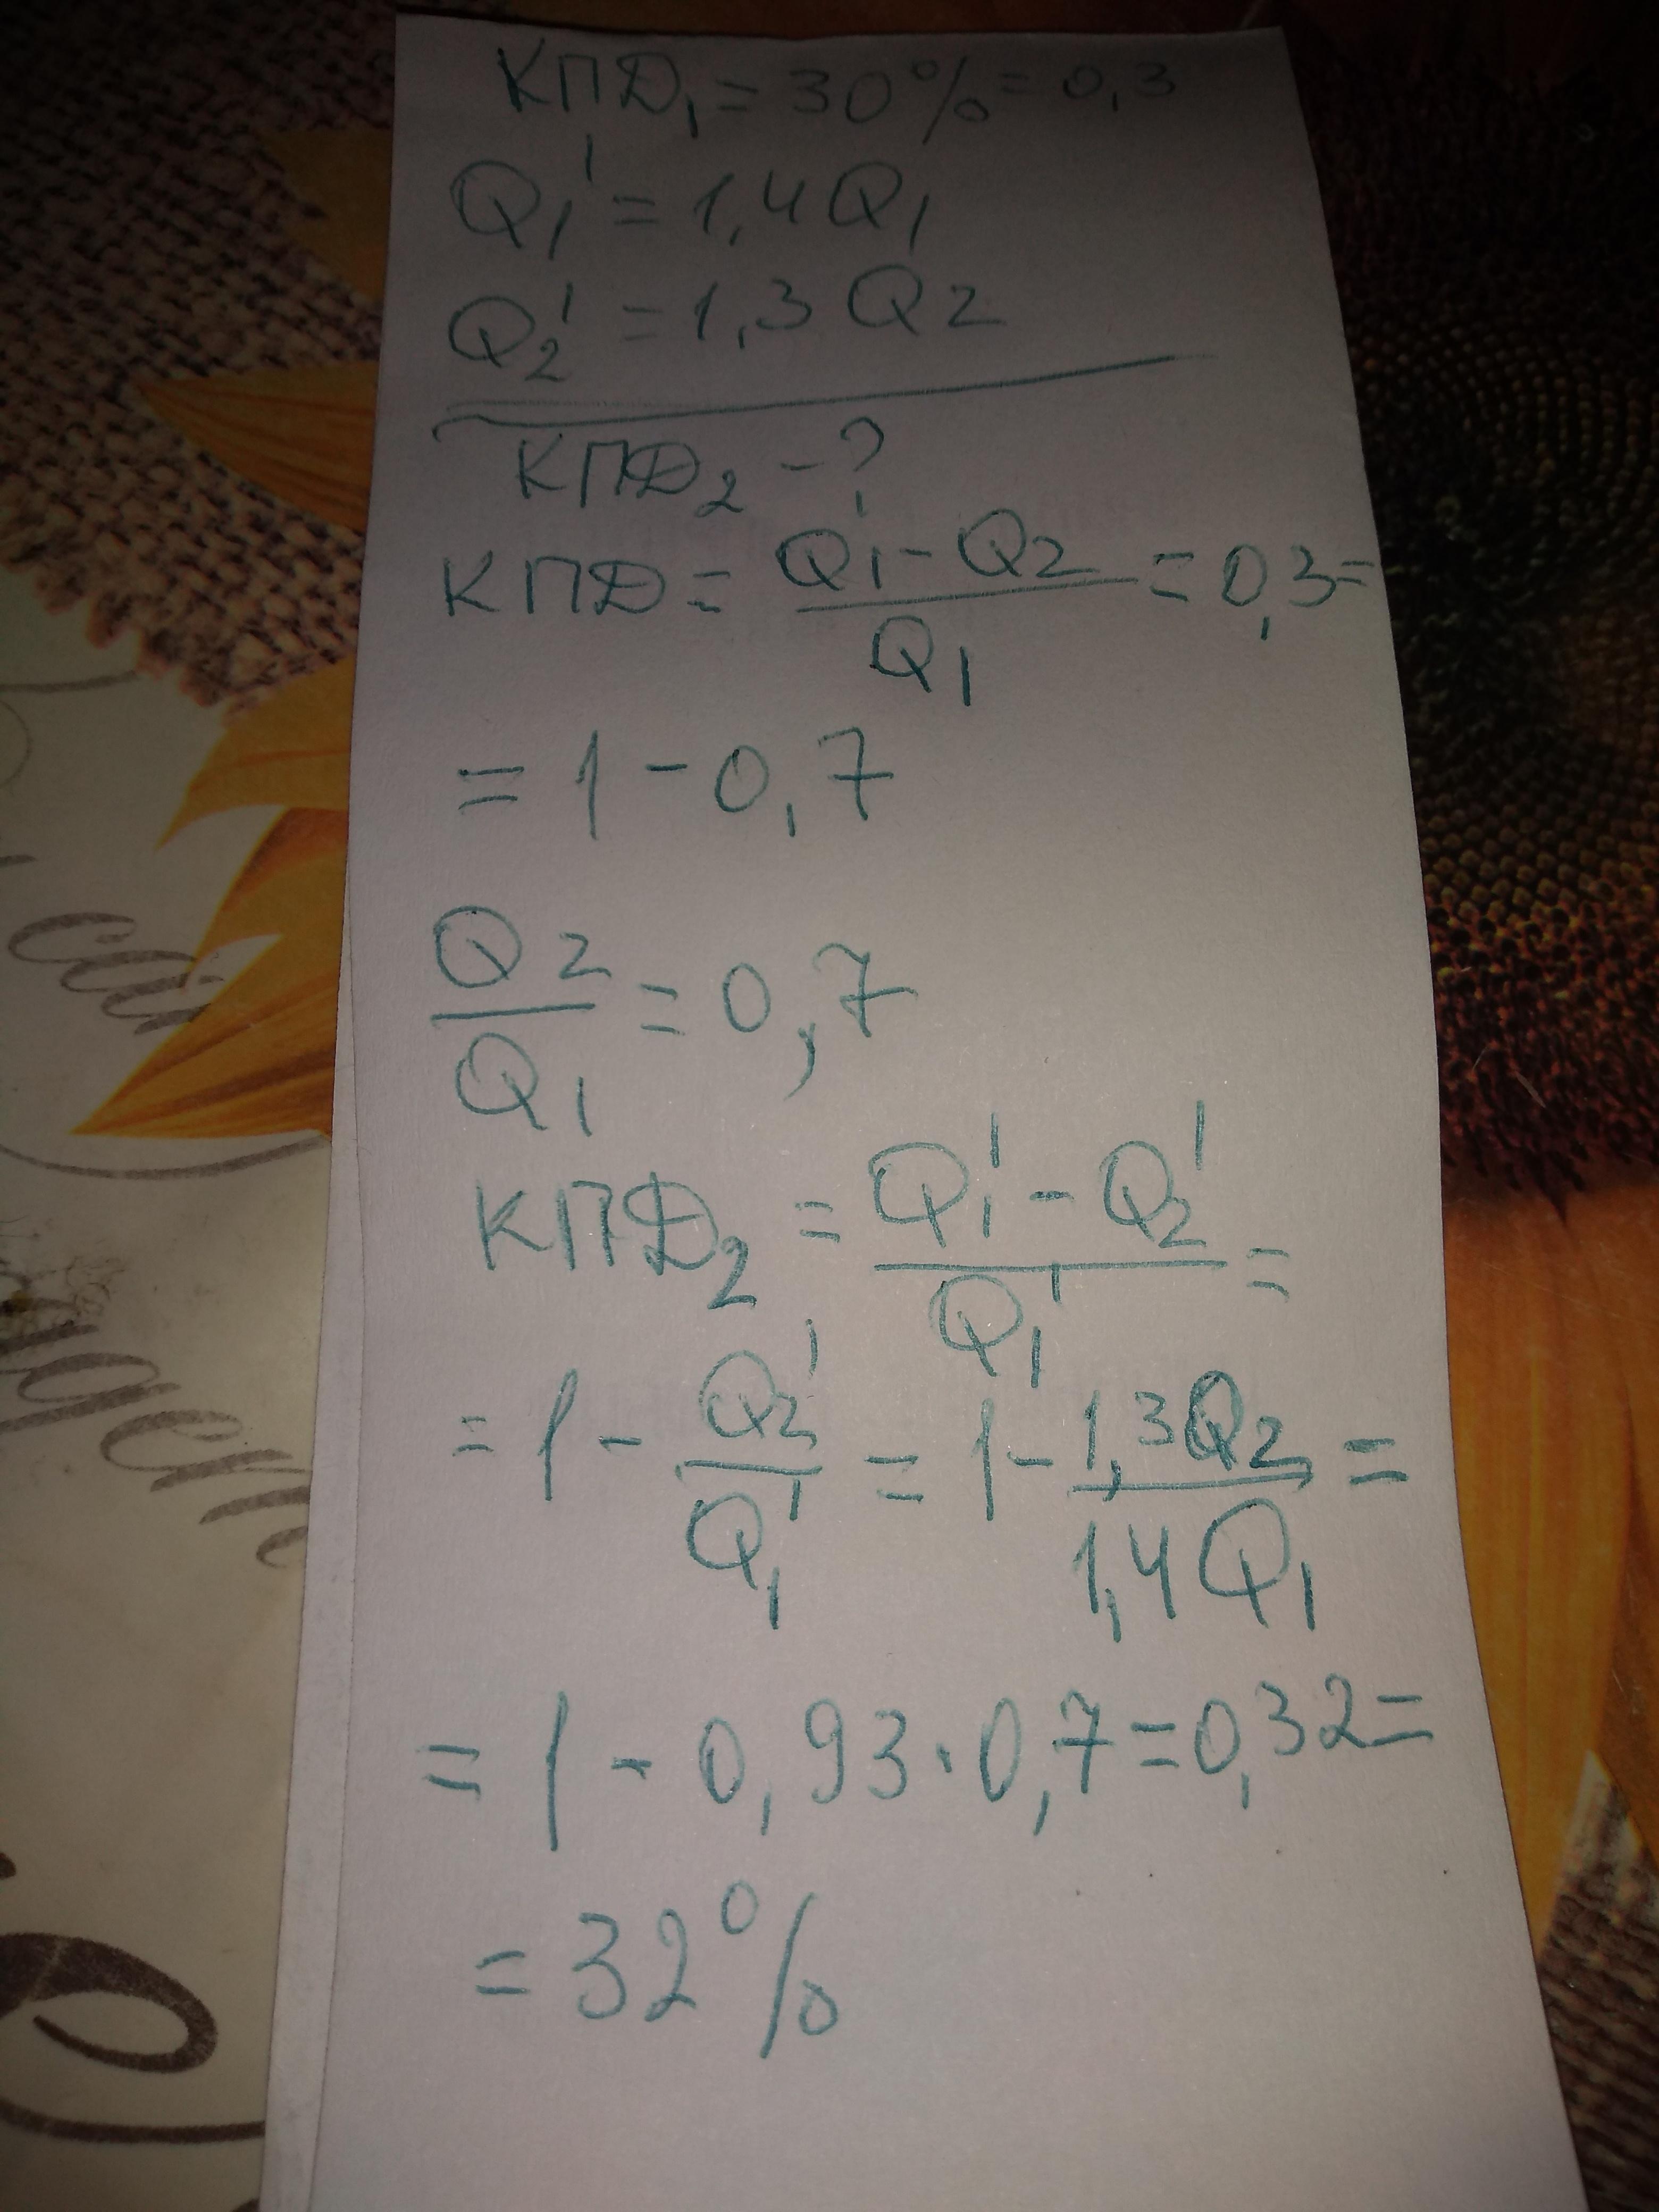 КПД₁ = 30% = 0,3
Q₁' = 1,4Q₁
Q₂' = 1,3Q2
КПД₂ - ?
КПД = Q₁ - Q2 / Q₁ = 0,3 =
= 1 - 0,7
Q2 / Q₁ = 0,7
КПД₂ = Q₁' - Q₂' / Q₁' =
= 1 - Q₂' / Q₁' = 1 - 1,3Q2 / 1,4Q₁ =
= 1 - 0,93 · 0,7 = 0,32 =
= 32%